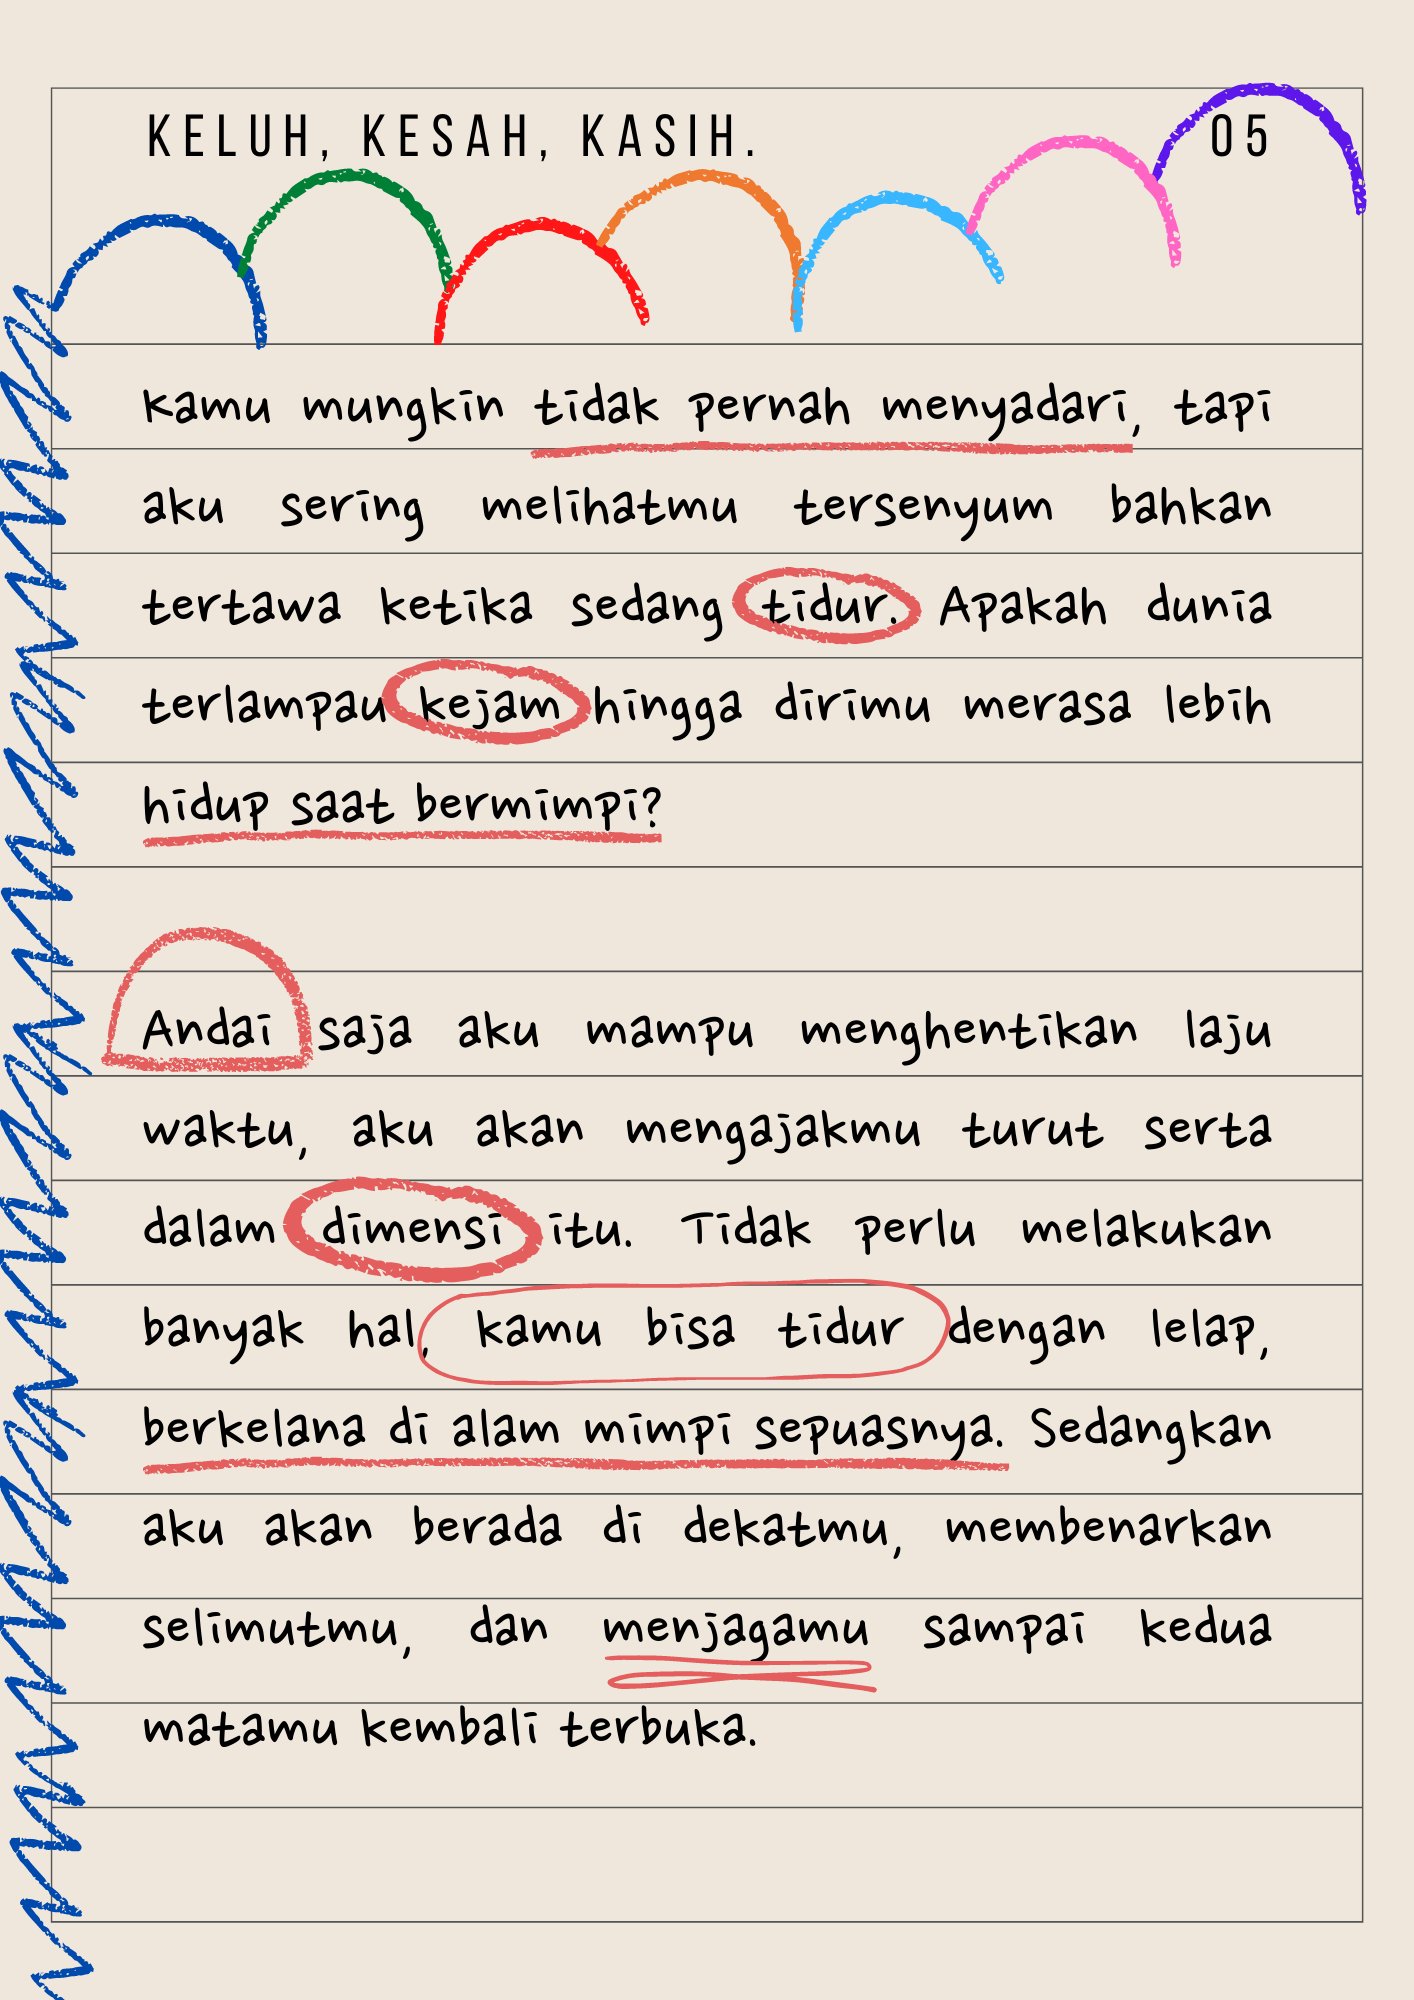 KELUH, KESAH, KASIH. 05
kamu mungkin tidak pernah menyadari, tapi
aku sering melihatmu tersenyum bahkan
tertawa ketika sedang tidur. Apakah dunia
terlampau kejam hingga dirimu merasa lebih
hidup saat bermimpi?
Andai saja aku mampu menghentikan laju
waktu, aku akan mengajakmu turut serta
dalam dimensi itu. Tidak perlu melakukan
banyak hal, kamu bisa tidur dengan lelap,
berkelana di alam mimpi sepuasnya. Sedangkan
aku akan berada di dekatmu, membenarkan
selimutmu, dan menjagamu sampai kedua
matamu kembali terbuka.